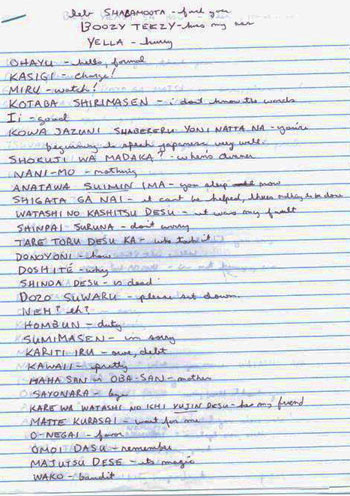 SHABAMOOTA -
BOOZY TEEZY - kiss my
YELLA - hurry
OHAYU - hello, formal
KASIGI - charge!
MIRU - watch!
KOTABA SHIRIMASEN - i don't know the words
Ii - good
KOWA JAZUNI SHABERERU YONI NATTA NA - you're
beginning to speak japanese very well.
SHOKUTI WA MADAKA? - where's dinner
NANI-MO - nothing
ANATAWA SUIMIN IMA - you sleep now
SHIGATA GA NAI - it can't be helped, theres nothing to be done
WATASHI NO KASHITSU DESU - it was my fault
SHINPAI SURUNA - don't worry
TARE TORU DESU KA - who took it
DONOYONI - how
DOSHITE - why
SHINDA DESU - is dead
DOZO SUWARU - please sit down.
NEH? eh?
HOMBUN - duty
SUMIMASEN - im sorry
KARITI IRU - owe, debt
KAWAII - pretty
HAHA SAN OBA-SAN - mother
SAYONARA - bye
KARE WA WATASHI NO ICHI YUJIN DESU - hes my friend
MATTE KURASAI - wait for me
O-NEGAI - favor
OMOI DASU - remember
MAJUTSU DESE - its magic
WAKO - bandit